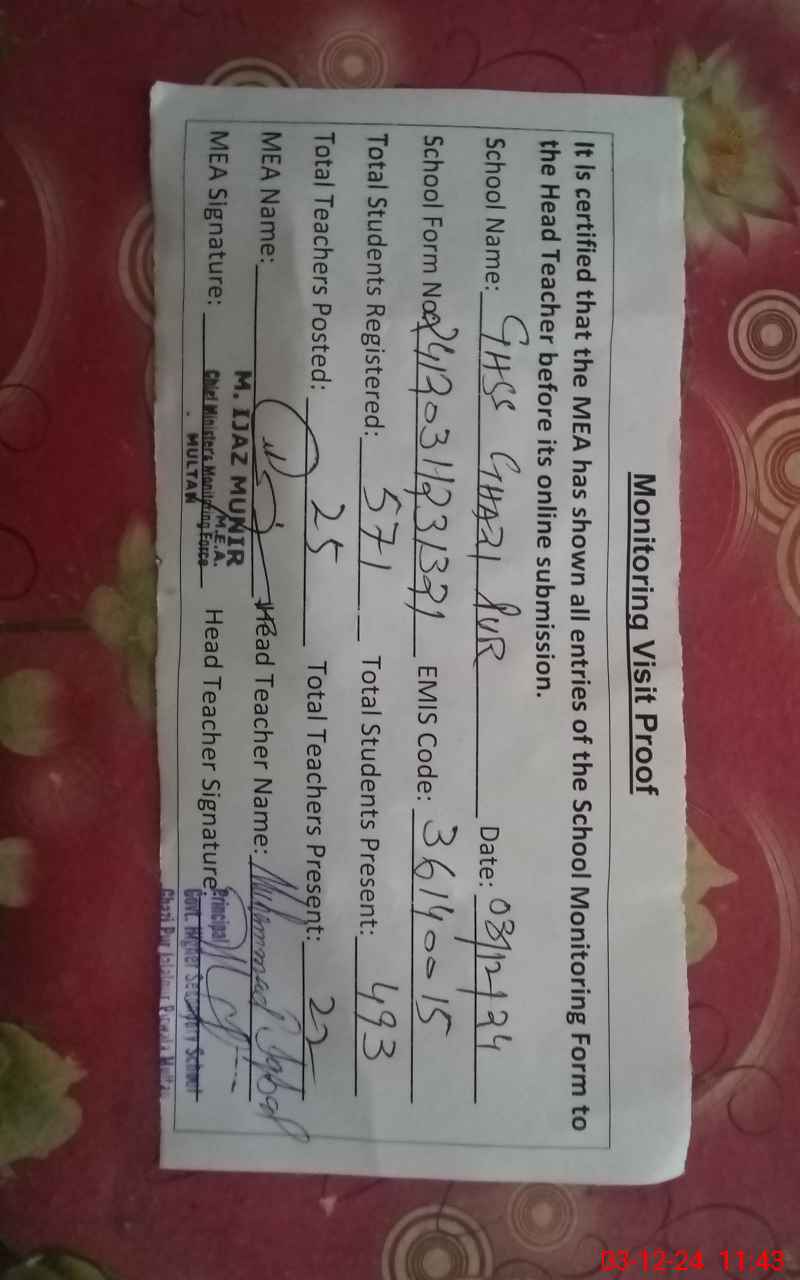 Monitoring Visit Proof
It is certified that the MEA has shown all entries of the School Monitoring Form to
the Head Teacher before its online submission.
School Name: GHSS GHAZI PUR Date: 03/12/24
School Form No: EMIS Code: 36140015
Total Students Registered: 571 Total Students Present: 493
Total Teachers Posted: 25 Total Teachers Present: 22
MEA Name: Head Teacher Name: Muhammad Iqbal
M. IJAZ MUNIR
M.E.A.
MEA Signature: Chief Minister's Monitoring Force Head Teacher Signature:
MULTAN
Principal
Govt. Higher Secondary School
Ghazi Pur Jalalpur Pirwala Multan
03-12-24 11:43